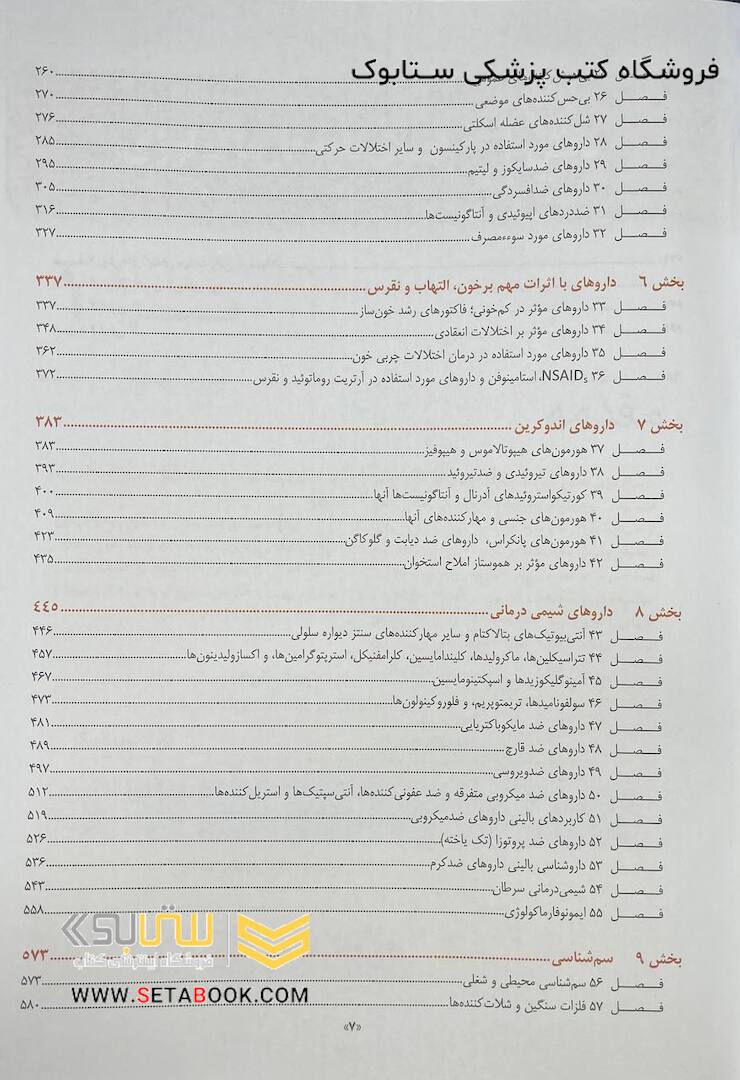 فروشگاه کتب پزشکی ستابوک
۲۶۰
فصل ۲۶ بی‌حس‌کننده‌های موضعی ۲۷۰
فصل ۲۷ شل‌کننده‌های عضله اسکلتی ۲۷۶
فصل ۲۸ داروهای مورد استفاده در پارکینسون و سایر اختلالات حرکتی ۲۸۵
فصل ۲۹ داروهای ضدسایکوز و لیتیم ۲۹۵
فصل ۳۰ داروهای ضدافسردگی ۳۰۵
فصل ۳۱ ضددردهای اپیوئیدی و آنتاگونیست‌ها ۳۱۶
فصل ۳۲ داروهای مورد سوءمصرف ۳۲۷
بخش ۶ داروهای با اثرات مهم برخون، التهاب و نقرس ۳۳۷
فصل ۳۳ داروهای مؤثر در کم‌خونی؛ فاکتورهای رشد خون‌ساز ۳۳۷
فصل ۳۴ داروهای مؤثر بر اختلالات انعقادی ۳۴۸
فصل ۳۵ داروهای مورد استفاده در درمان اختلالات چربی خون ۳۶۲
فصل ۳۶ NSAIDs، استامینوفن و داروهای مورد استفاده در آرتریت روماتوئید و نقرس ۳۷۲
بخش ۷ داروهای اندوکرین ۳۸۳
فصل ۳۷ هورمون‌های هیپوتالاموس و هیپوفیز ۳۸۳
فصل ۳۸ داروهای تیروئیدی و ضدتیروئید ۳۹۳
فصل ۳۹ کورتیکواستروئیدهای آدرنال و آنتاگونیست‌ها آنها ۴۰۰
فصل ۴۰ هورمون‌های جنسی و مهارکننده‌های آنها ۴۰۹
فصل ۴۱ هورمون‌های پانکراس، داروهای ضد دیابت و گلوکاگن ۴۲۳
فصل ۴۲ داروهای مؤثر بر هموستاز املاح استخوان ۴۳۵
بخش ۸ داروهای شیمی درمانی ۴۴۵
فصل ۴۳ آنتی‌بیوتیک‌های بتالاکتام و سایر مهارکننده‌های سنتز دیواره سلولی ۴۴۶
فصل ۴۴ تتراسیکلین‌ها، ماکرولیدها، کلیندامایسین، کلرامفنیکل، استرپتوگرامین‌ها، و اکسازولیدینون‌ها ۴۵۷
فصل ۴۵ آمینوگلیکوزیدها و اسپکتینومایسین ۴۶۷
فصل ۴۶ سولفونامیدها، تریمتوپریم، و فلوروکینولون‌ها ۴۷۳
فصل ۴۷ داروهای ضد مایکوباکتریایی ۴۸۱
فصل ۴۸ داروهای ضد قارچ ۴۸۹
فصل ۴۹ داروهای ضدویروسی ۴۹۷
فصل ۵۰ داروهای ضد میکروبی متفرقه و ضد عفونی‌کننده‌ها، آنتی‌سپتیک‌ها و استریل‌کننده‌ها ۵۱۲
فصل ۵۱ کاربردهای بالینی داروهای ضدمیکروبی ۵۱۹
فصل ۵۲ داروهای ضد پروتوزا (تک یاخته) ۵۲۶
فصل ۵۳ داروشناسی بالینی داروهای ضدکرم ۵۳۶
فصل ۵۴ شیمی‌درمانی سرطان ۵۴۳
فصل ۵۵ ایمونوفارماکولوژی ۵۵۸
ستابوک
فروشگاه اینترنتی کتاب
بخش ۹ سم‌شناسی ۵۷۳
فصل ۵۶ سم‌شناسی محیطی و شغلی ۵۷۳
فصل ۵۷ فلزات سنگین و شلات‌کننده‌ها ۵۸۰
WWW.SETABOOK.COM
«۷»